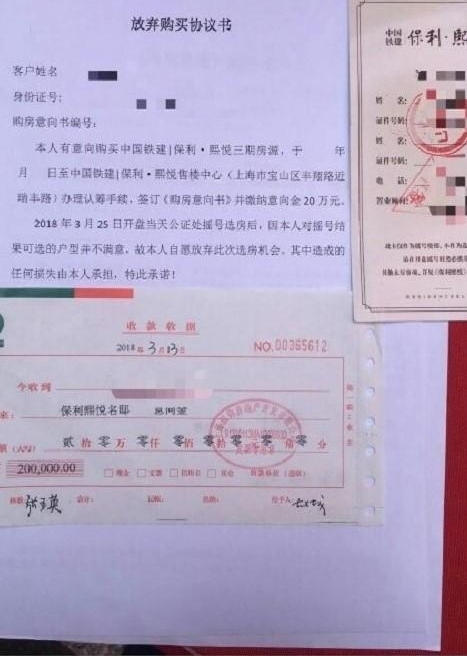 放弃购买协议书
客户姓名
身份证号:
购房意向书编号:
本人有意向购买中国铁建|保利·熙悦三期房源，于 年
月 日至中国铁建|保利·熙悦售楼中心（上海市宝山区丰翔路近
瑞丰路）办理认筹手续，签订《购房意向书》并缴纳意向金 20 万元。
2018 年 3 月 25 日开盘当天公证处摇号选房后，因本人对摇号结
果可选的户型并不满意，故本人自愿放弃此次选房机会，其中造成的
任何损失由本人承担，特此承诺！
中国铁建 保利·熙
姓 名:
证件号码:
姓 名:
证件号码:
电 话:
置业顾问:
收款收据
2018 年 3月13日
NO.00365612
今收到
来: 保利熙悦名邸 意向金
额(大写) 贰 拾 零 万 零 仟 零 佰 零 拾 零 元 零 角 零 分
200,000.00 现金 支票 信用卡 其他